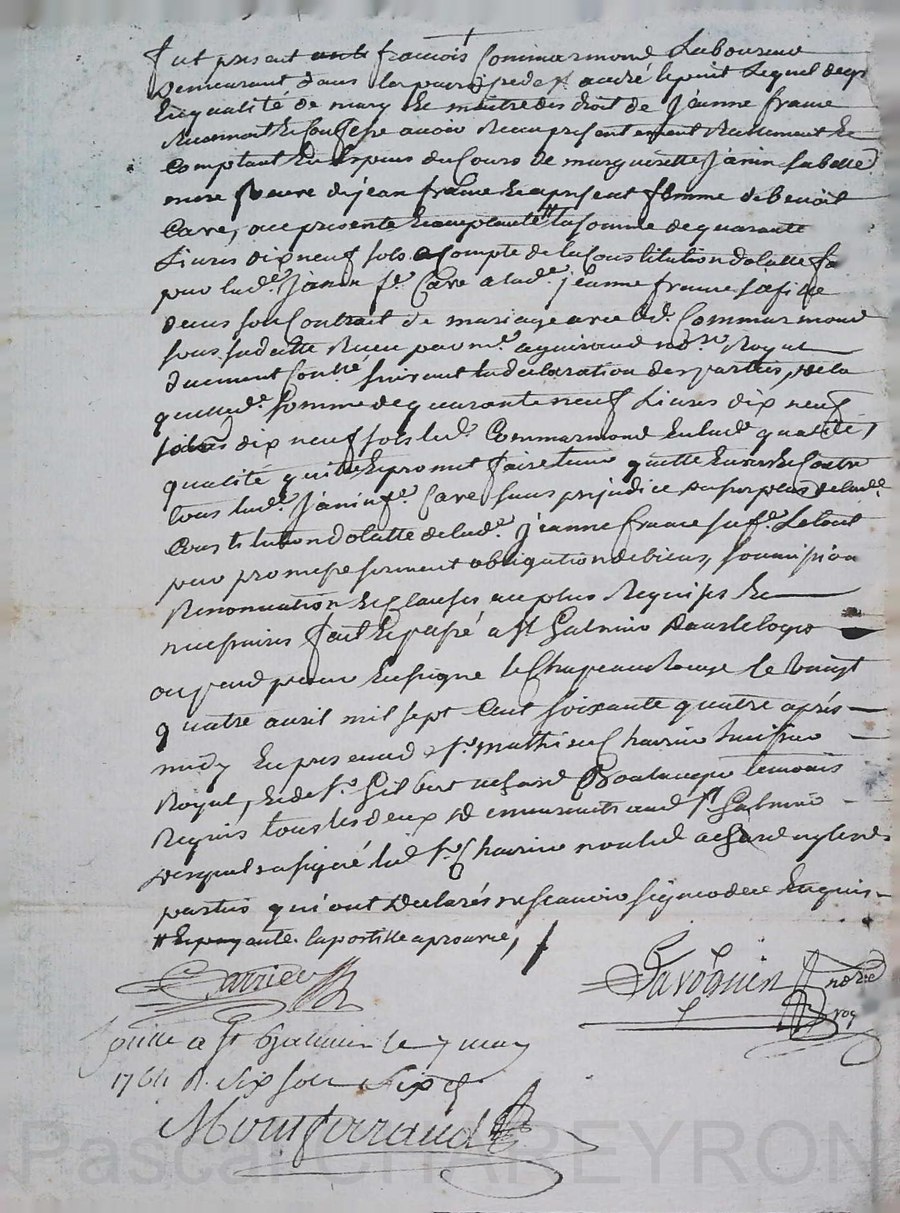 fut present francois Commarmond Laboureur
Demeurant dans la parroisse de st andré le puit Lequel de gre
En qualité de mary Et maitre des droit de Jeanne france
Reconnoit Et Confesse avoir Receu presentement Reellement Et
Comptant En Especes du Cours de marguerite Janin sa belle
mere veuve de jean france Et a present femme de benoit
Cave, ici presente Et acceptante # la somme de quarante
Livres dix neuf sols a Compte de la Constitution dotalle fte
par lade. Janin fe. Cave a lade. jeanne france sa fille
dans son Contrat de mariage avec led. Commarmond
sous sa datte Receu par me. aguiraud nore. Royal
duement Conllé. suivant la declaration des parties, de la
quelle de. somme de quarante neuf Livres dix neuf
sols dix neuf sols led. Commarmond En lade. qualité,
qualité quitte Et promet faire tenir quitte Envers Et Contre
tous lade. Janin fe. Cave sans prejudice du surplus de lade.
Constitution dotalle de lade. jeanne france sa fe. Le tout
par promesse serment obligation de biens, soumission
Renonciation Et Clauses au plus Requises Et
necessaires fait Et passé a st Galmier dans le logis
ou pend pour Enseigne le Chapeau Rouge le vingt
quatre avril mil sept Cent soixante quatre après
midy En presence de sr. mathieu Chavrier huissier
Royal, Et de sr. Gilbert Boulanger temoins
Requis tous les deux Demeurants aud. st Galmier
Desquels a signé led. sr. Chavrier non led. ny lesd.
parties qui ont Declarés ne scavoir signer de ce Enquis
# Et payante. lapostille aprouvée,
Chavrier
nore
Roy
Conllé a st Galmier le 7 may
1764 R. six sols six d.
Montferrand
Pascal CHAREYRON